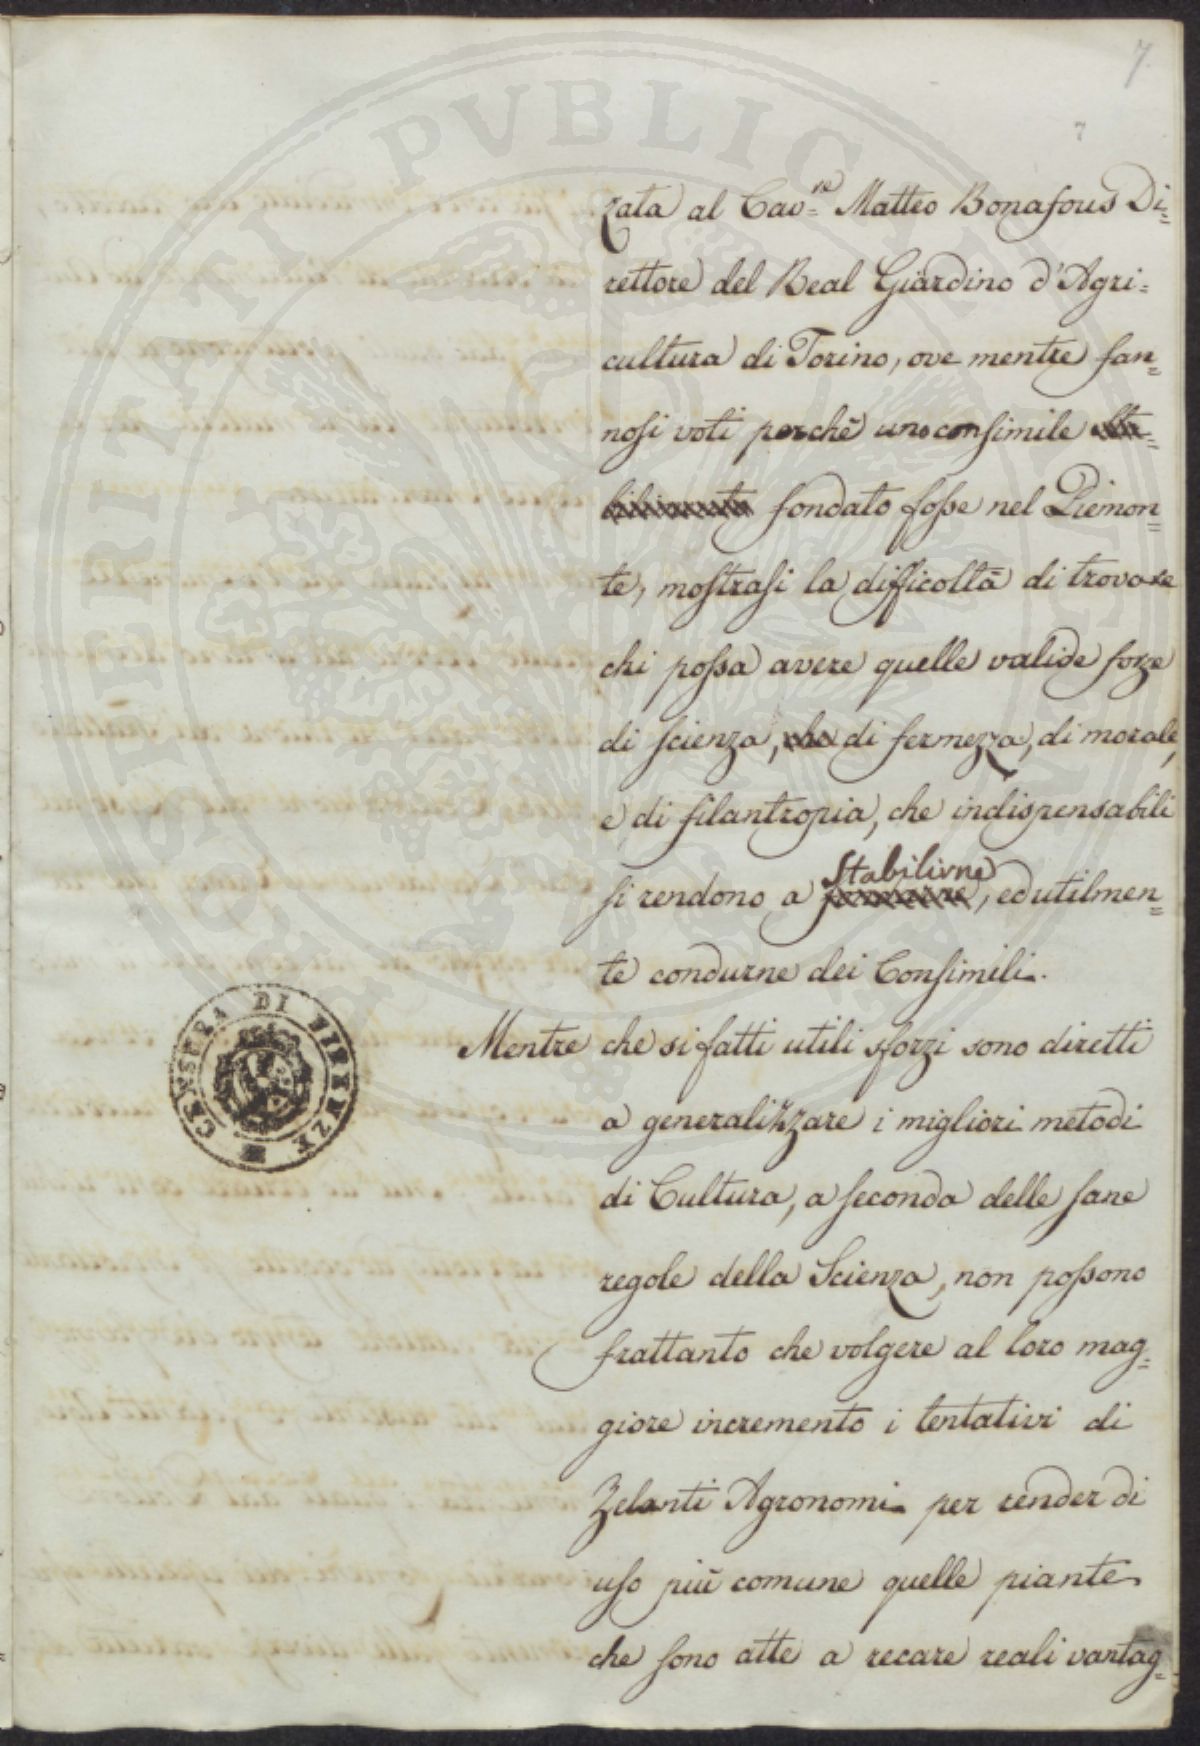 7.
7
zata al Cav.re Matteo Bonafous Di=
rettore del Real Giardino d'Agri=
cultura di Torino, ove mentre fan=
nosi voti perchè uno consimile
fondato fosse nel Piemon=
te, mostrasi la difficoltà di trovare
chi possa avere quelle valide forze
di scienza, che di fermezza, di morale,
e di filantropia, che indispensabili
Stabilirne
si rendono a , ed utilmen=
te condurne dei Consimili.
Mentre che si fatti utili sforzi sono diretti
a generalizzare i migliori metodi
di Cultura, a seconda delle sane
regole della Scienza, non possono
frattanto che volgere al loro mag=
giore incremento i tentativi di
Zelanti Agronomi per render di
uso più comune quelle piante
che sono atte a recare reali vantag=
CENSURA DI FIRENZE
PUBLICAE
PROSPERITATI